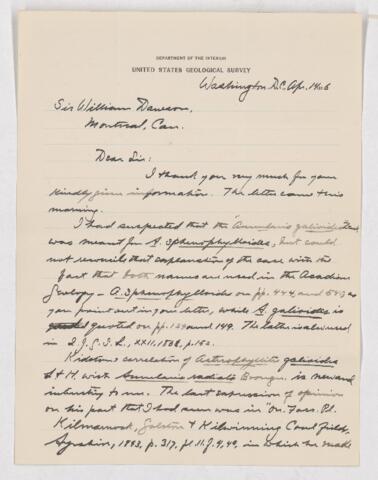 DEPARTMENT OF THE INTERIOR
UNITED STATES GEOLOGICAL SURVEY
Washington D.C. Apr.
Sir William Dawson,
Montreal, Can.
Dear Sir:
I thank you very much for your
kindly given information. The letter came this
morning.
I had suspected that the "Annularia galioides"
was meant for A. sphenophylloides, but could
not reconcile that explanation of the case with the
fact that both names are used in the Acadian
Geology – A. sphenophylloides on pp. 444, and as
you point out in your letter, while A. galioides is
quoted on pp. and 149. The latter is also used
in Q.J.G.S.L., XXII, p. 152.
Kidston's correlation of Asterophyllites galioides
L & H. with Annularia radiata Brongn. is new and
interesting to me. The last expression of opinion
on his part that I had seen was in "On Foss. Pl.
Kilmarnock, Galston & Kilwinning Coal Field,
Ayrshire, 1893, p. 317, pl. II, f. 4, 4a, in which he made